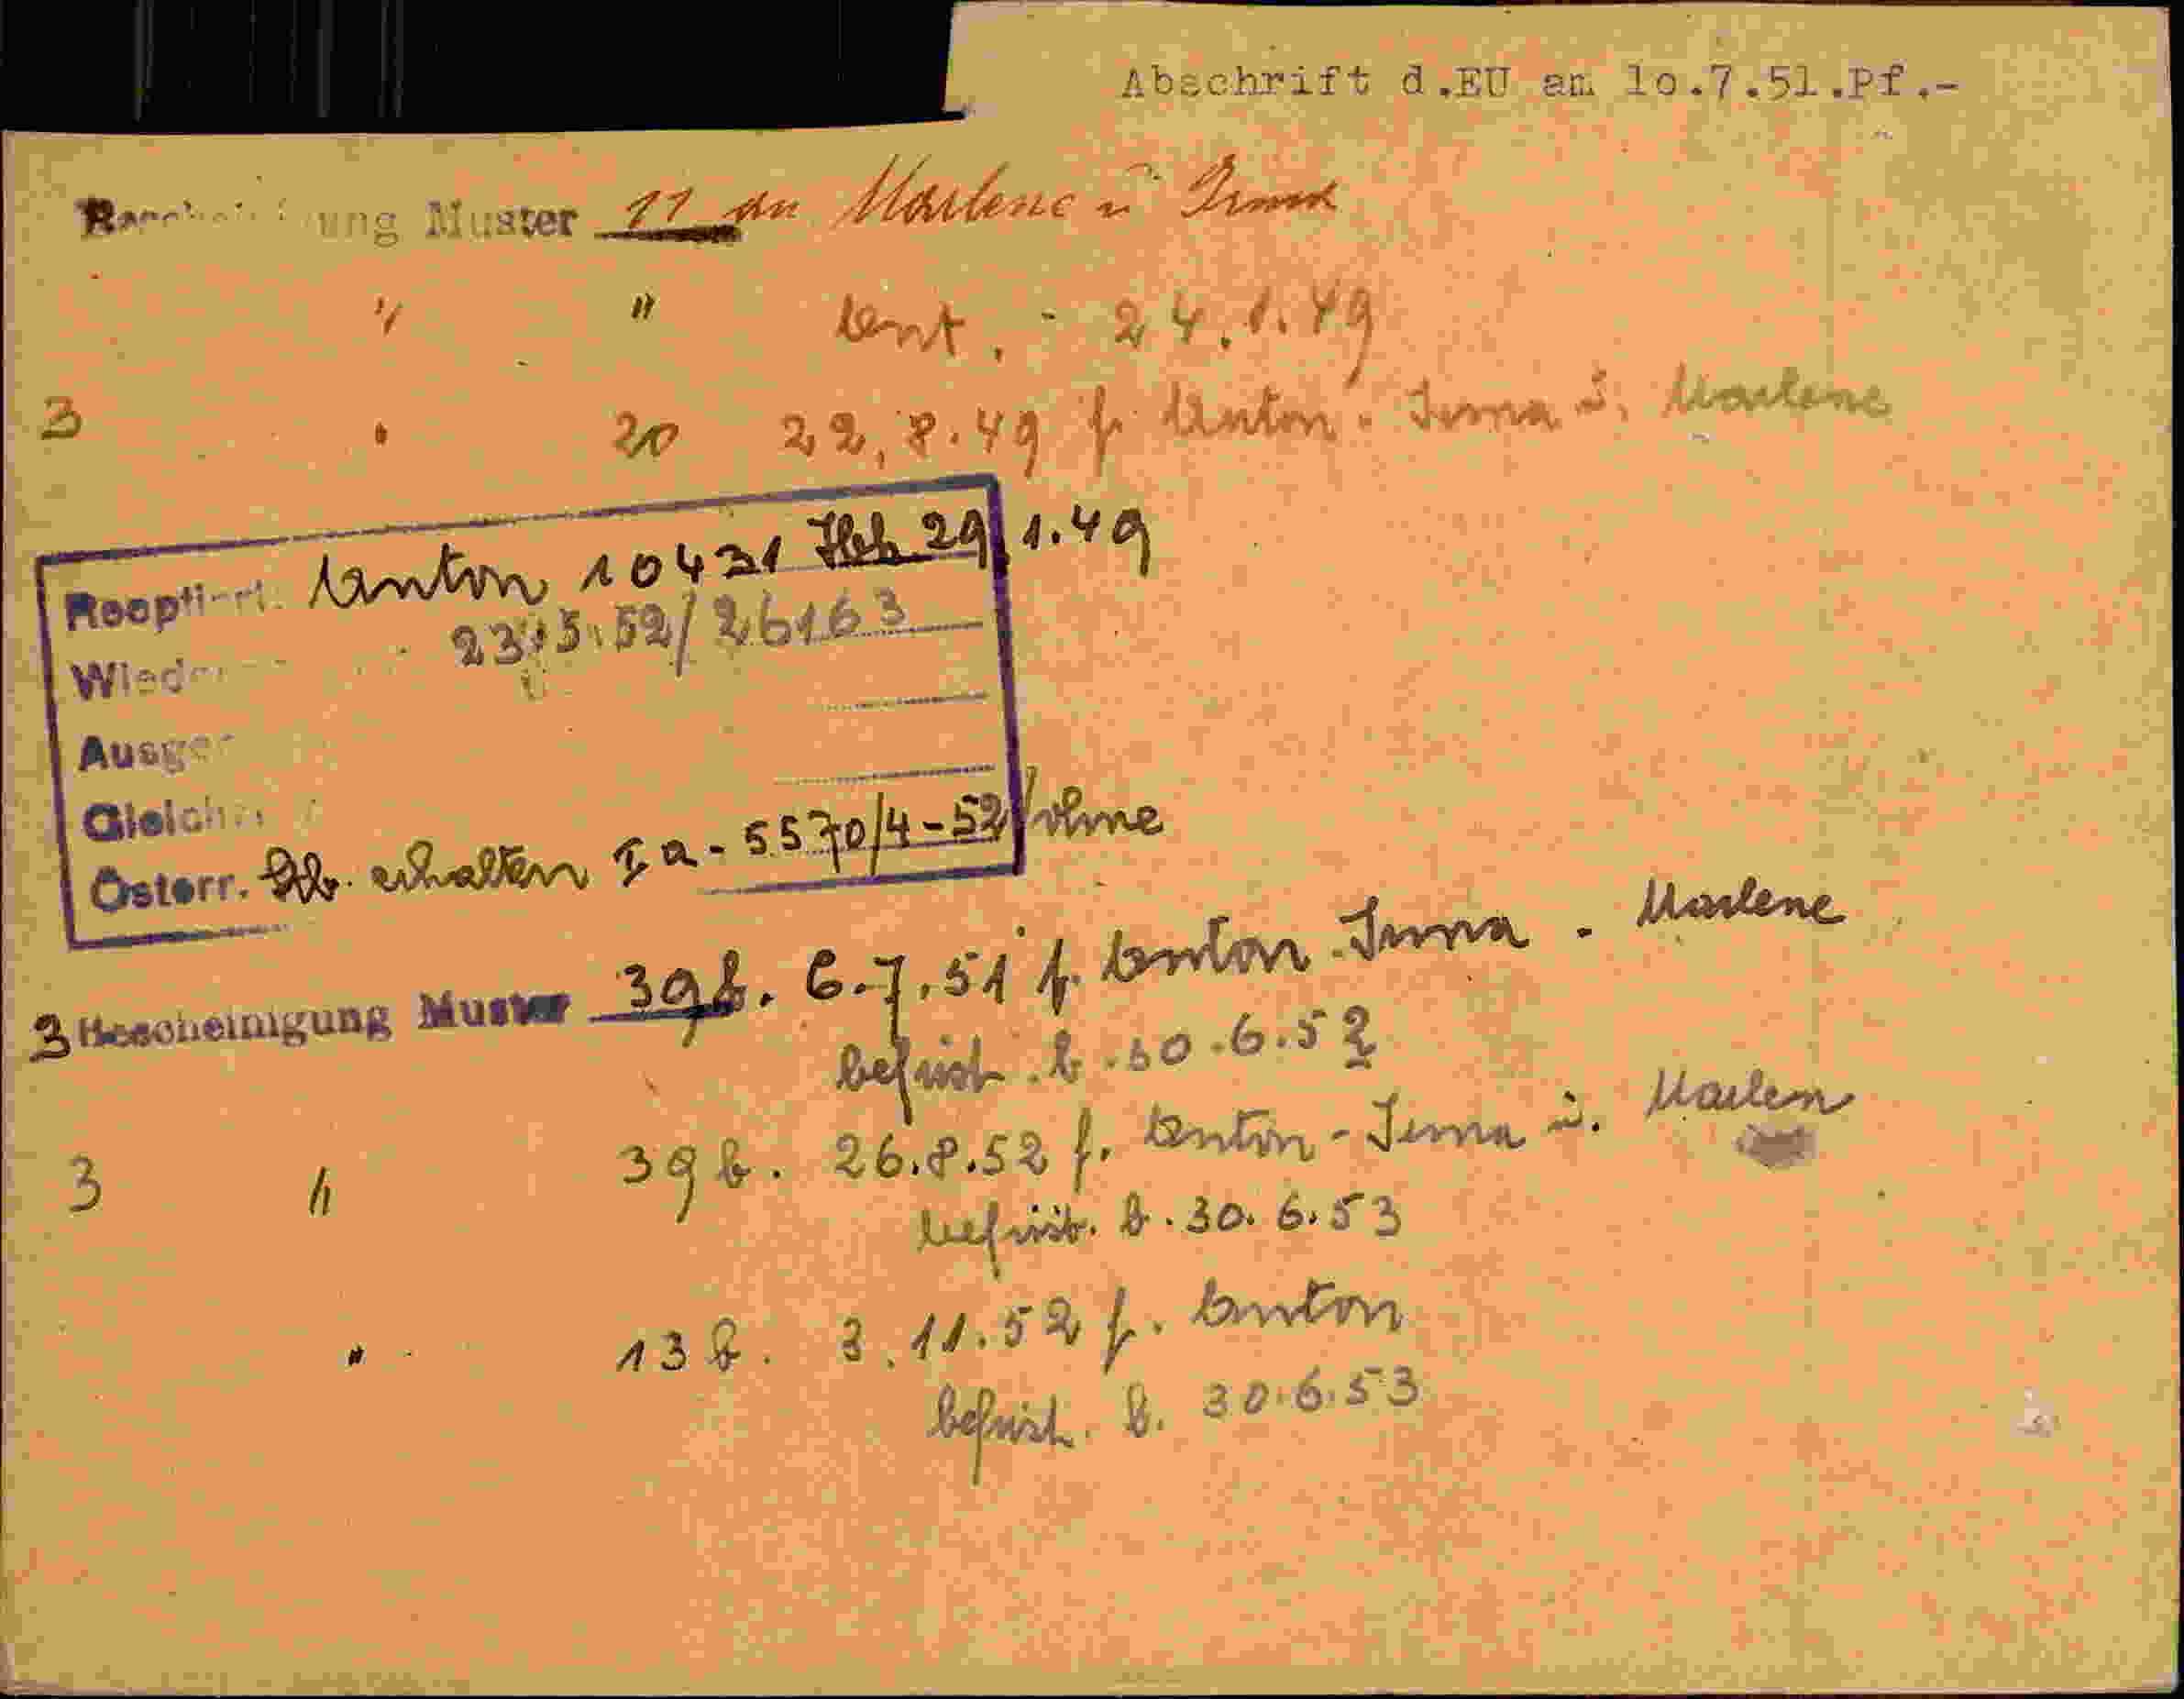 Abschrift d.EU am lo.7.51.Pf.-
Bescheinigung Muster 11 an Marlene u Irma
" " Ant. - 24.1.49
3 " 20 22.8.49 f. Anton - Irma u. Marlene
Reoptiert: Anton 10431 29.1.49
23.5.52/26163
Wied
Ausge
Gleich
Österr. Stb. erhalten I a - 5570/4-52/ohne
3 Bescheinigung Muster 39b. 6.7.51 f. Anton - Irma - Marlene
befrist. b. 30.6.52
3 " 39b. 26.8.52 f. Anton - Irma u. Marlen
befrist. b. 30.6.53
" 13b. 3.11.52 f. Anton
befrist. b. 30.6.53